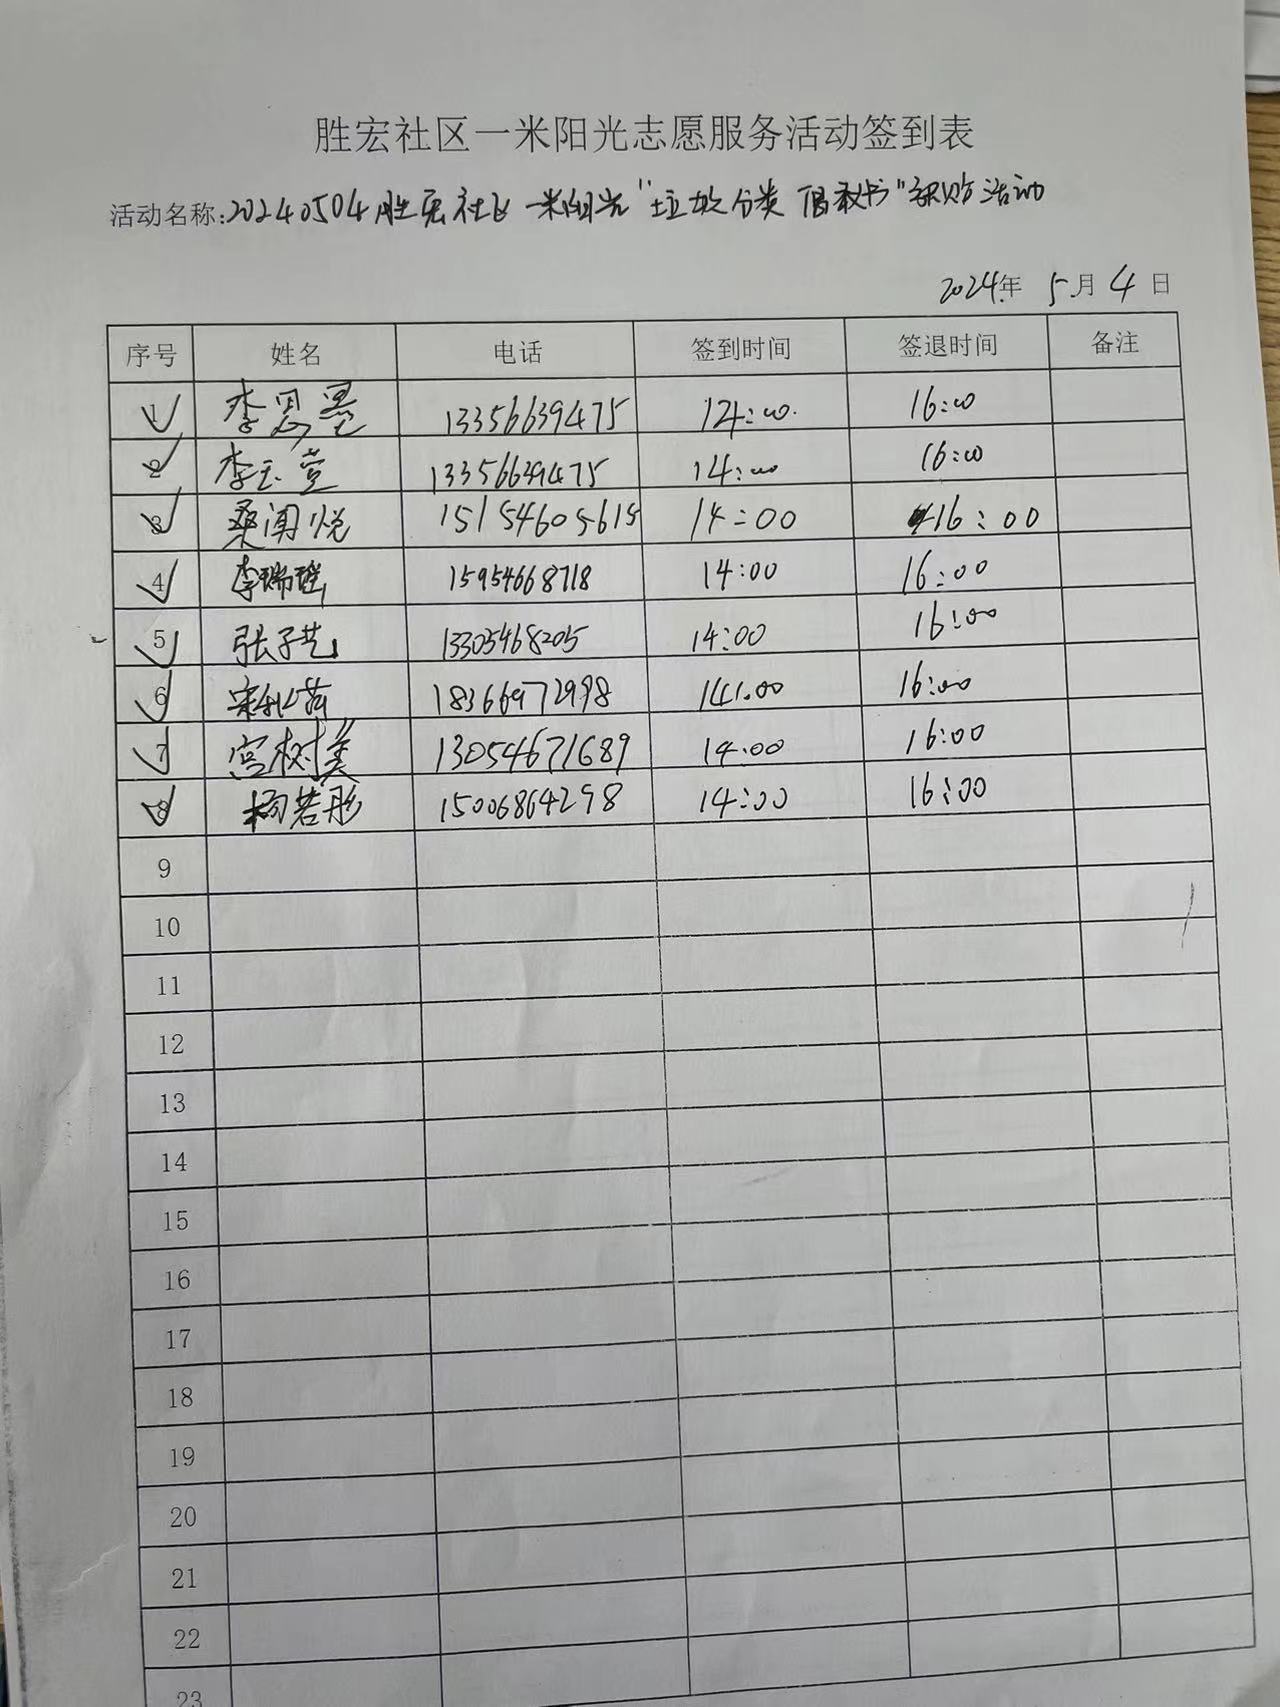 胜宏社区一米阳光志愿服务活动签到表
活动名称:20240504胜宏社区一米阳光"垃圾分类 倡议书"张贴活动
2024年 5月 4日
序号 姓名 电话 签到时间 签退时间 备注
1 李思墨 13356639475 14:00 16:00
2 李玉萱 13356639475 14:00 16:00
3 桑闻悦 15154605615 14:00 16:00
4 李瑞瑶 15954668718 14:00 16:00
5 张子艺 13305468205 14:00 16:00
6 18366972998 14:00 16:00
7 宫树美 13054671689 14:00 16:00
8 杨若彤 15006864298 14:00 16:00
9
10
11
12
13
14
15
16
17
18
19
20
21
22
23